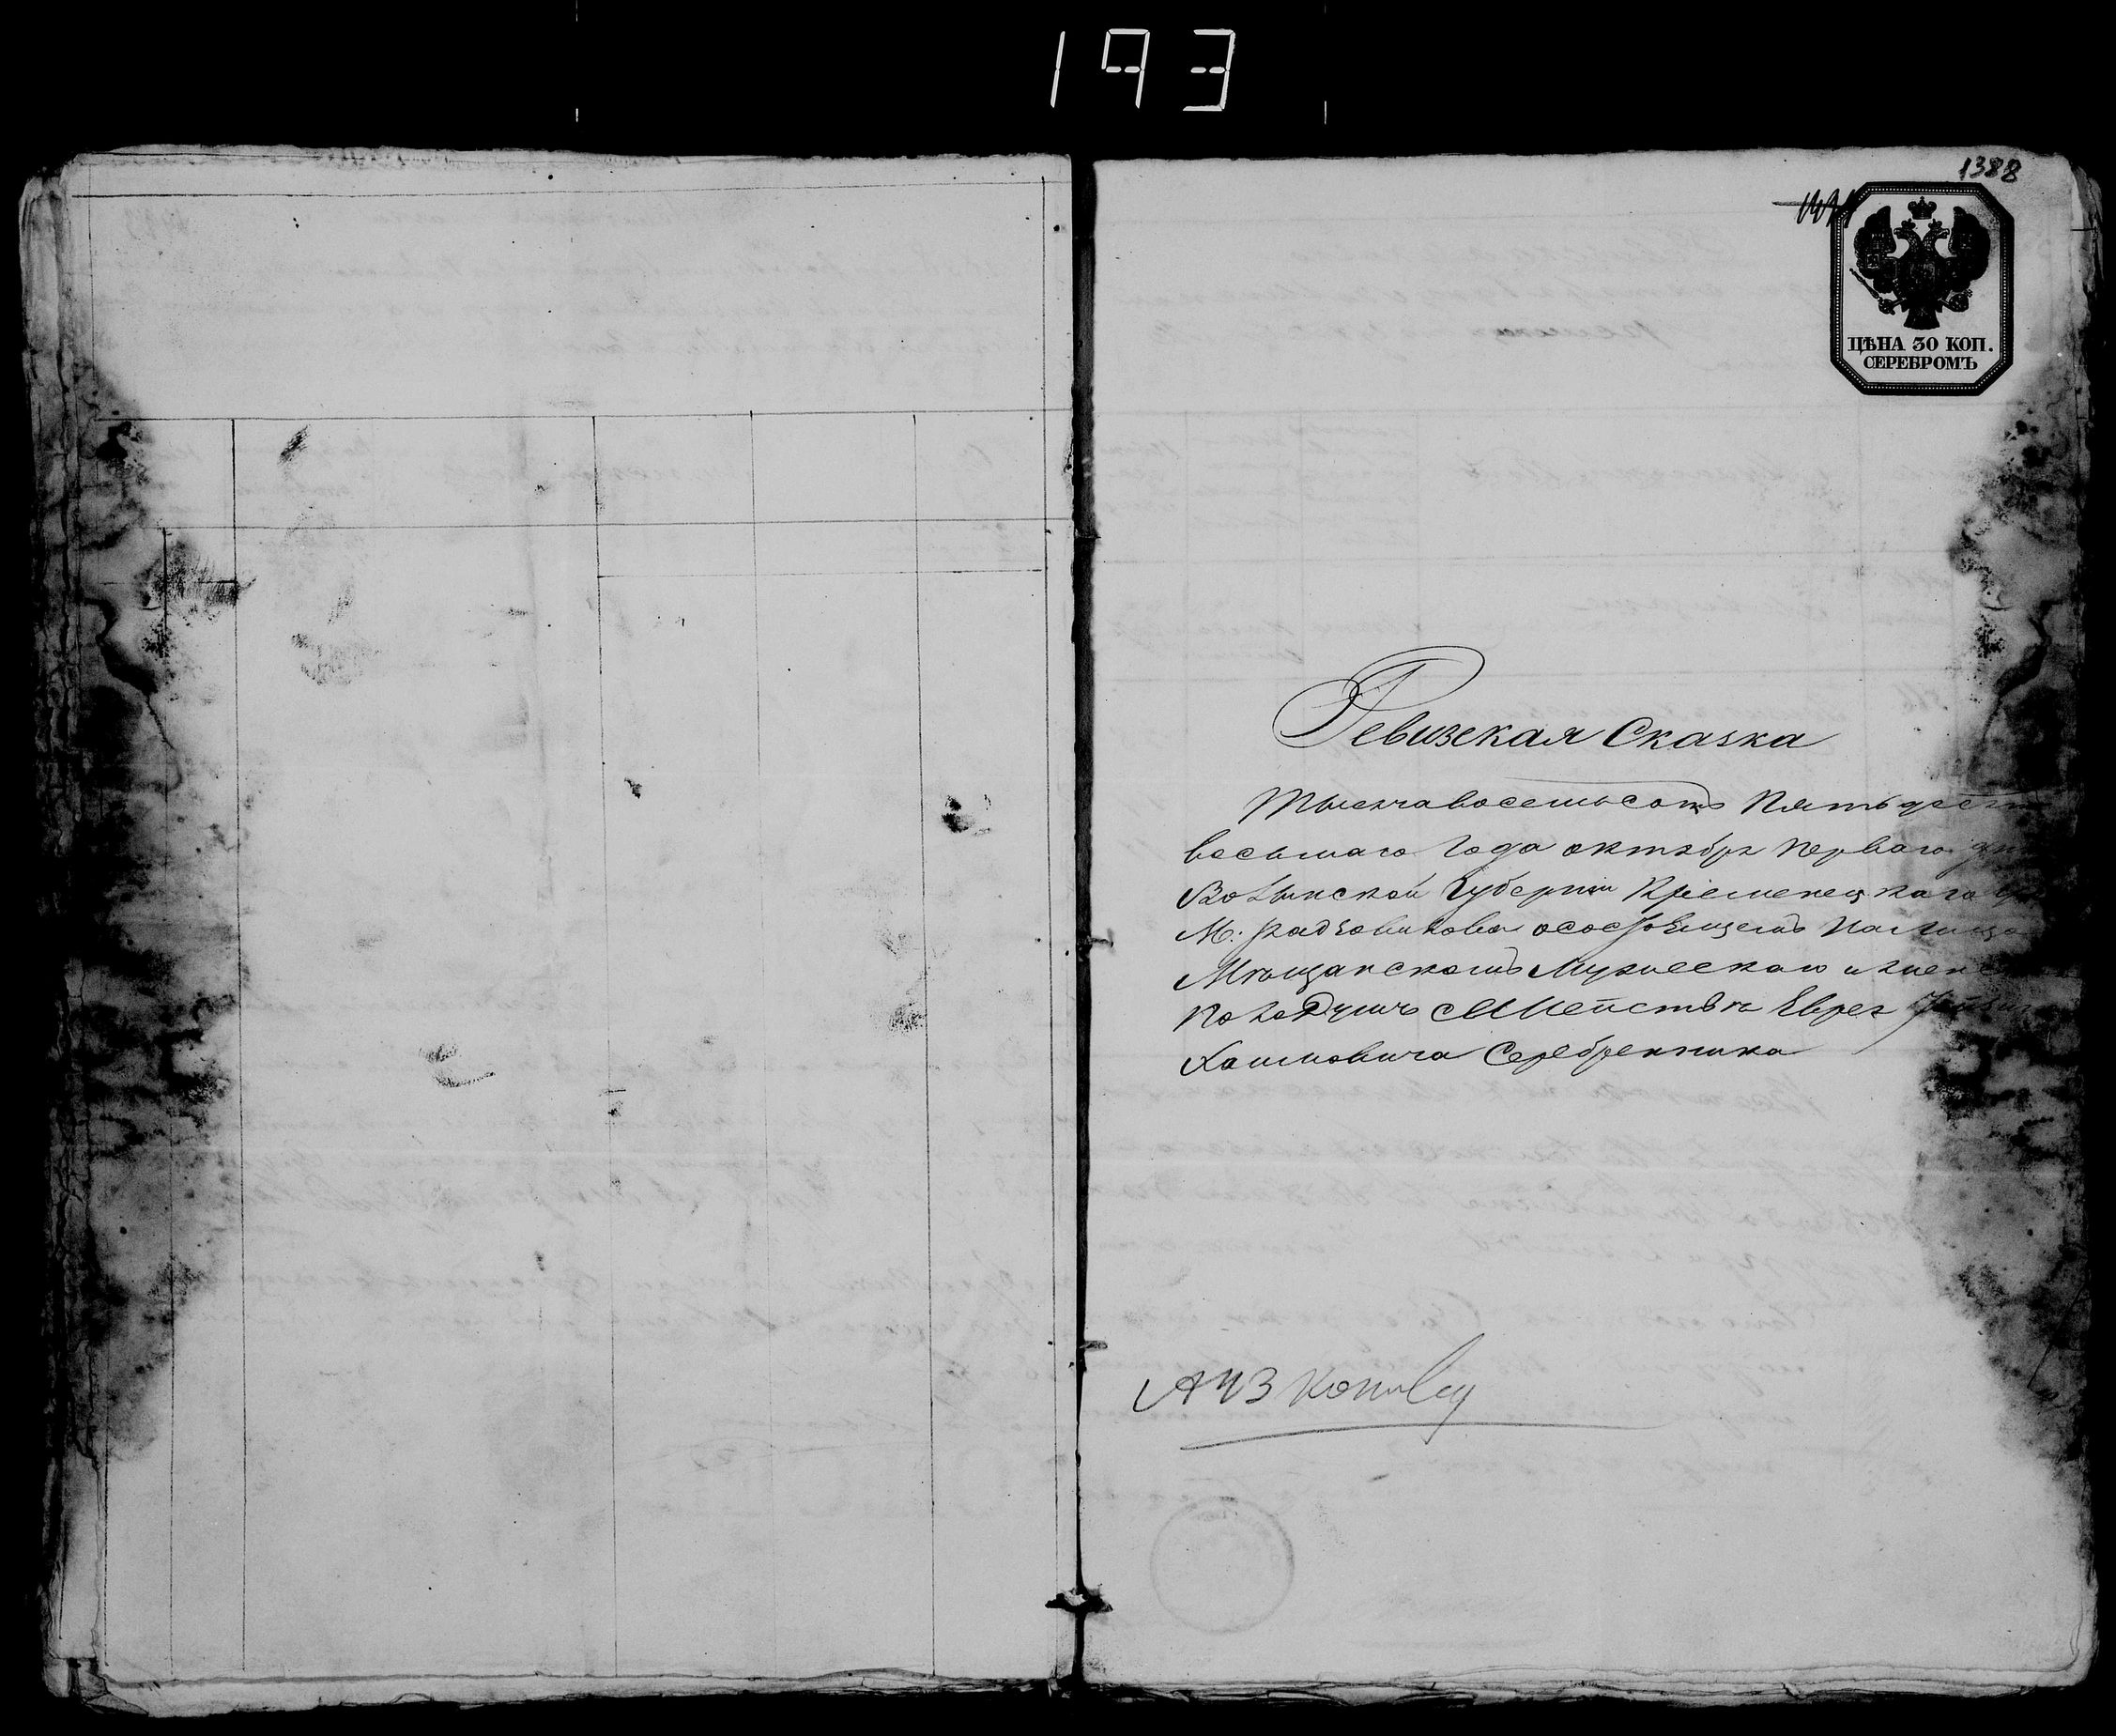 193
1388
ЦѢНА 30 КОП.
СЕРЕБРОМЪ
Ревизская Сказка
Тысяча восемьсотъ Пятьдесят
восьмаго Года октября Перваго дня
Волынской Губернии Кременецкаго
М: Радзовилова о состоящемъ на лицо
Мѣщанскомъ Мужескаго и женс
пола семействѣ Еврея
Хаимовича Серебренника